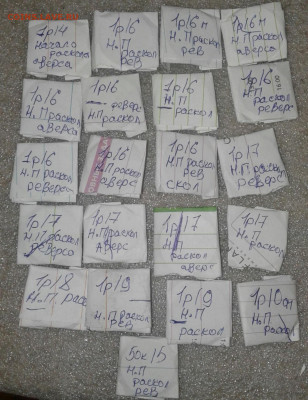 1р14
начало
раскола
аверса
1р16
Н.П
раскол
рев
1р16м
Н.Праскол
рев
1р16м
Н.Праскол
аверса
1р16
Н.Праскол
аверса
1р16
реверс
Н.Праскол
1р16
Н.П
раскол
1р16
Н.П
раскол
реверс
1р16
Н.Праскол
реверса
1р16
Н.Праскол
аверс
1р16
Н.П раскол
рев
скол
1р17
Н.Праскол
реверс
1р17
Н.П раскол
реверса
1р17
Н.Праскол
аверс
1р17
Н.П
раскол
аверс
1р17
Н.П
раскол
1р18
Н.П рас
1р19
Н.Праскол
рев
1р19
Н.П
раскол
1р10
Н.П
раскол
50к15
Н.П
раскол
рев